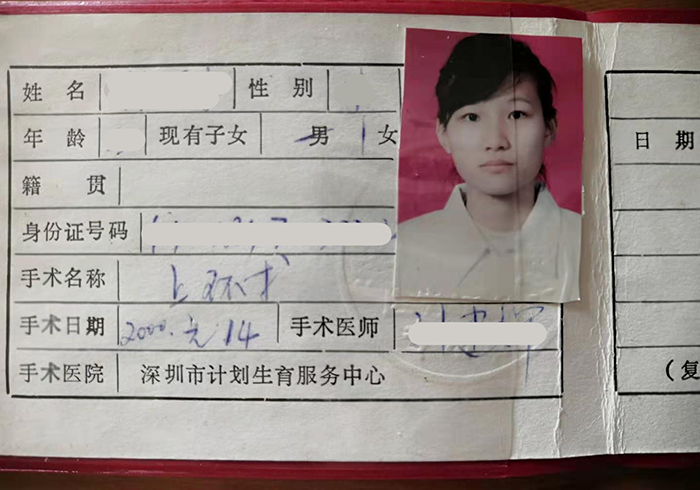 姓 名 性 别
年 龄 现有子女 一男 1女 日 期
籍 贯
身份证号码
手术名称 上环术
手术日期 2000.元14 手术医师
手术医院 深圳市计划生育服务中心 (复